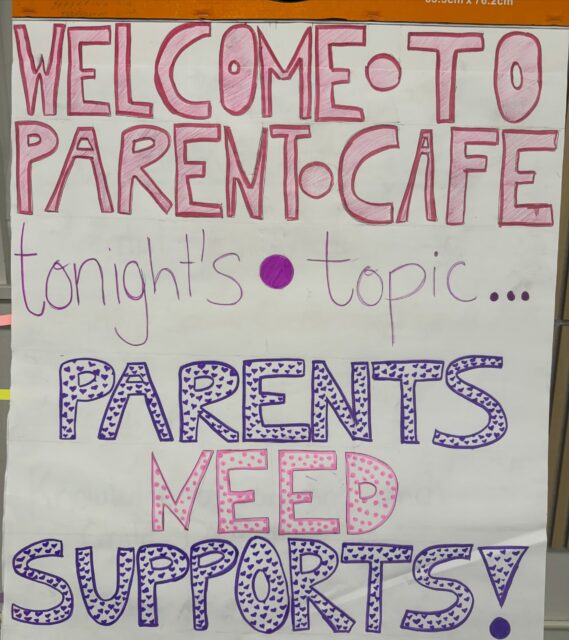 63.5cm x 76.2cm
WELCOME•TO
PARENT•CAFE
tonight's • topic...
PARENTS
NEED
SUPPORTS!